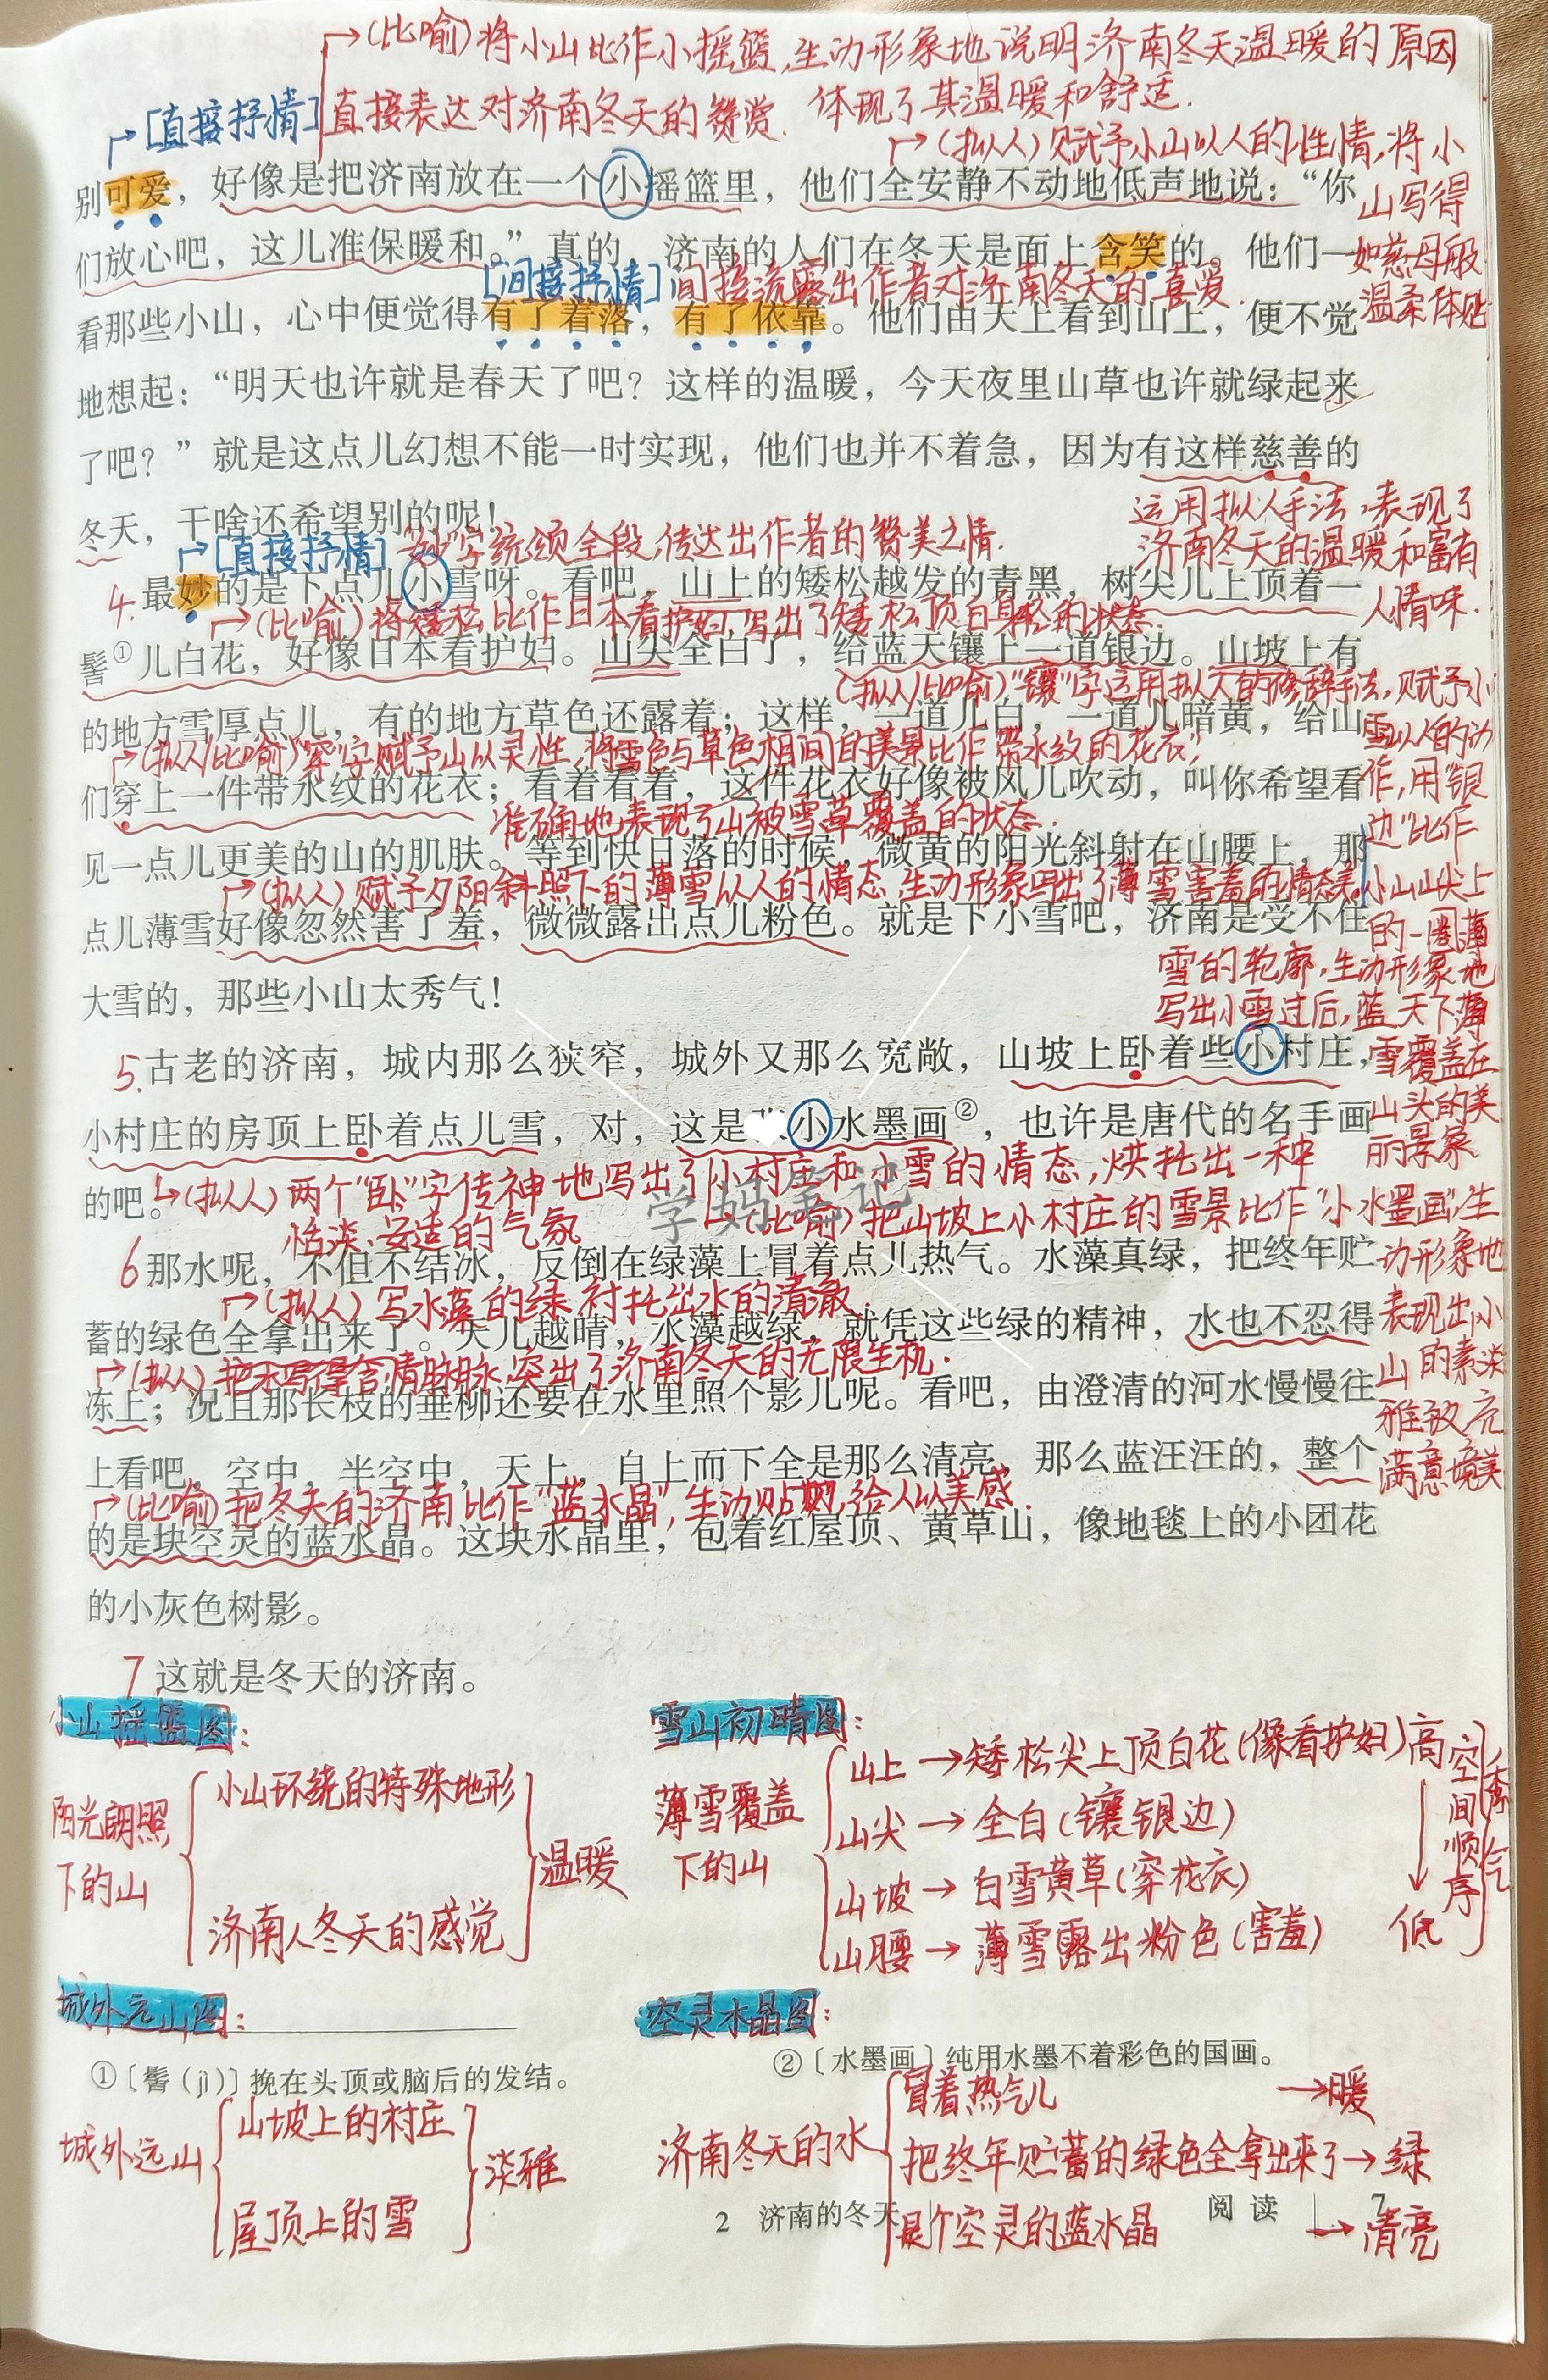 →(比喻)将小山比作小摇篮,生动形象地说明济南冬天温暖的原因
[直接抒情]直接表达对济南冬天的赞赏. 体现了其温暖和舒适.
→(拟人)赋予小山以人的性情,将小
别可爱，好像是把济南放在一个小摇篮里，他们全安静不动地低声地说：“你
山写得
们放心吧，这儿准保暖和。”真的，济南的人们在冬天是面上含笑的。他们一
如慈母般
[间接抒情]间接流露出作者对济南冬天的喜爱.
温柔体贴
看那些小山，心中便觉得有了着落，有了依靠。他们由天上看到山上，便不觉
地想起：“明天也许就是春天了吧？这样的温暖，今天夜里山草也许就绿起来
了吧？”就是这点儿幻想不能一时实现，他们也并不着急，因为有这样慈善的
冬天，干啥还希望别的呢！
运用拟人手法,表现了
济南冬天的温暖和富有
人情味.
→[直接抒情]“妙”字统领全段,传达出作者的赞美之情.
4.最妙的是下点儿小雪呀。看吧，山上的矮松越发的青黑，树尖儿上顶着一
→(比喻)将矮松比作日本看护妇,写出了矮松顶白
髻①儿白花，好像日本看护妇。山尖全白了，给蓝天镶上一道银边。山坡上有
(拟人/比喻)“镶”字运用拟人的修辞手法,赋予小
雪以人的动
作,用“银
边”比作
小山山尖上
的一圈薄
雪的轮廓,生动形象地
写出小雪过后,蓝天下薄
雪覆盖在
山头的美
丽景象
的地方雪厚点儿，有的地方草色还露着；这样，一道儿白，一道儿暗黄，给山
→(拟人/比喻)“穿”字赋予山以灵性,将雪色与草色相间的美景比作“带水纹的花衣”,
们穿上一件带水纹的花衣；看着看着，这件花衣好像被风儿吹动，叫你希望看
准确地表现了山被雪草覆盖的状态.
见一点儿更美的山的肌肤。等到快日落的时候，微黄的阳光斜射在山腰上，那
→(拟人)赋予夕阳斜照下的薄雪以人的情态,生动形象写出了薄雪害羞的情态美.
点儿薄雪好像忽然害了羞，微微露出点儿粉色。就是下小雪吧，济南是受不住
大雪的，那些小山太秀气！
5.古老的济南，城内那么狭窄，城外又那么宽敞，山坡上卧着些小村庄，
小村庄的房顶上卧着点儿雪，对，这是小水墨画②，也许是唐代的名手画
的吧。
→(拟人)两个“卧”字传神地写出了小村庄和小雪的情态,烘托出一种
恬淡、安适的气氛
→(比喻)把山坡上小村庄的雪景比作“小水墨画”,生
动形象地
表现出小
山的素淡
雅致,充
满意境美
学妈笔记
6那水呢，不但不结冰，反倒在绿藻上冒着点儿热气。水藻真绿，把终年贮
→(拟人)写水藻的绿,衬托出水的清澈
蓄的绿色全拿出来了。天儿越晴，水藻越绿，就凭这些绿的精神，水也不忍得
→(拟人)把水写得含情脉脉,突出了济南冬天的无限生机.
冻上；况且那长枝的垂柳还要在水里照个影儿呢。看吧，由澄清的河水慢慢往
上看吧，空中，半空中，天上，自上而下全是那么清亮，那么蓝汪汪的，整个
→(比喻)把冬天的济南比作“蓝水晶”,生动贴切,给人以美感.
的是块空灵的蓝水晶。这块水晶里，包着红屋顶、黄草山，像地毯上的小团花
的小灰色树影。
7这就是冬天的济南。
小山摇篮图:
阳光朗照
下的山
小山环绕的特殊地形
济南人冬天的感觉
温暖
雪山初晴图:
薄雪覆盖
下的山
山上→矮松尖上顶白花(像看护妇)
山尖→全白(镶银边)
山坡→白雪黄草(穿花衣)
山腰→薄雪露出粉色(害羞)
高
低
空间顺序
秀气
城外远山图:
①〔髻（jì）〕挽在头顶或脑后的发结。
城外远山
山坡上的村庄
屋顶上的雪
淡雅
空灵水晶图:
②〔水墨画〕纯用水墨不着彩色的国画。
济南冬天的水
冒着热气儿→暖
把终年贮蓄的绿色全拿出来了→绿
是个空灵的蓝水晶→清亮
2 济南的冬天 阅读 7